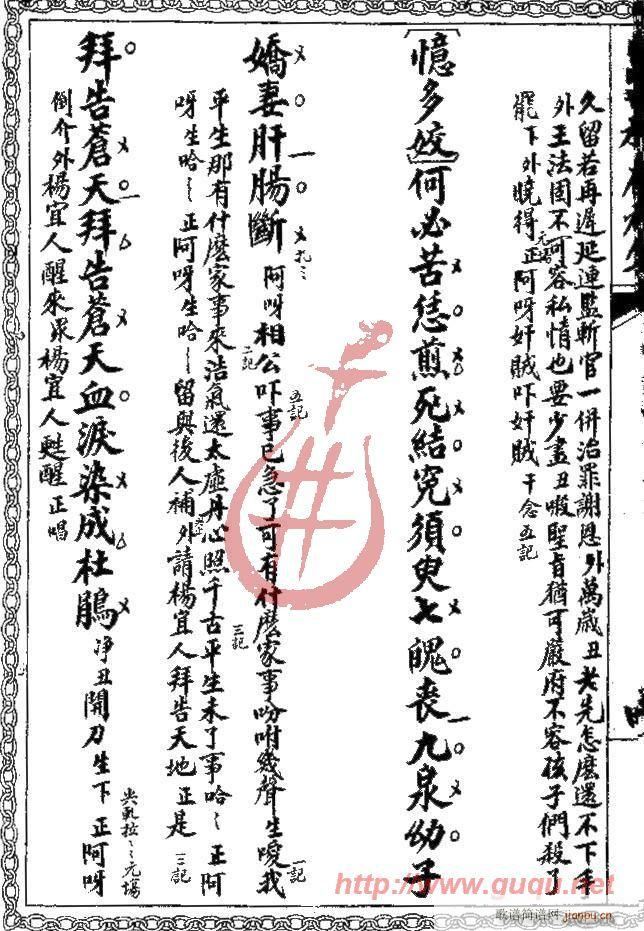 久留若再遲延連監斬官一併治罪謝恩外萬歲丑老先怎麽還不下手
外王法固不可容私情也要少盡丑嘥聖旨猶可嚴府不容孩子們殺了
罷下外曉得正阿呀奸賊吓奸賊干念五記
元場
[憶多姣]何必苦恁煎死結冤須臾七魄喪九泉幼子
嬌妻肝腸斷扎ミ阿呀相公吓事已急了可有什麽家事吩咐幾聲生噯我
二記
五記
一記
平生那有什麽家事來浩氣還太虛丹心照千古平生未了事哈ミ正阿
三記
呀生哈ミ正阿呀生哈ミ留與後人補外請楊宜人拜告天地正是三記
拜告蒼天拜告蒼天血淚染成杜鵑凈丑開刀生下正阿呀
倒介外楊宜人醒來衆楊宜人甦醒正唱
http://www.guqu.net
歌谱简谱网 jianpu.cn